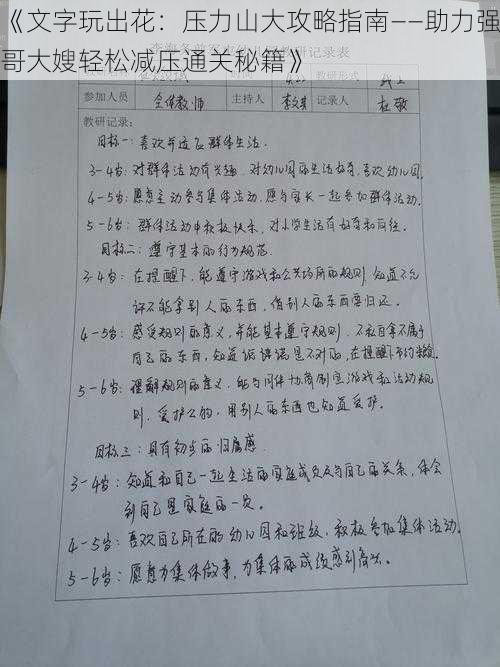 《文字玩出花：压力山大攻略指南——助力强
哥大嫂轻松减压通关秘籍》
教研记录表
教研形式
参加人员 全体教师 主持人 记录人
教研记录：
目标一：喜欢并适应群体生活.
3-4岁：对群体活动有兴趣，对幼儿园的生活好奇，喜欢幼儿园.
4-5岁：愿意主动参与集体活动，愿与家长一起参加群体活动.
5-6岁：群体活动中积极快乐，对小学生活有好奇和向往.
目标二：遵守基本的行为规范.
3-4岁：在提醒下，能遵守游戏和公共场所的规则，知道不允
许不能拿别人的东西，借别人的东西要归还.
4-5岁：感受规则的意义，并能基本遵守规则，不私自拿不属于
自己的东西，知道说谎是不对的，在提醒下节约
5-6岁：理解规则的意义，能与同伴协商制定游戏和活动规
则，爱护公物，用别人的东西也知道爱护.
目标三：具有初步的归属感
3-4岁：知道和自己一起生活的家庭成员及与自己的关系，体会
到自己是家庭的一员.
4-5岁：喜欢自己所在的幼儿园和班级，积极参加集体活动.
5-6岁：愿意为集体做事，为集体的成绩感到高兴.